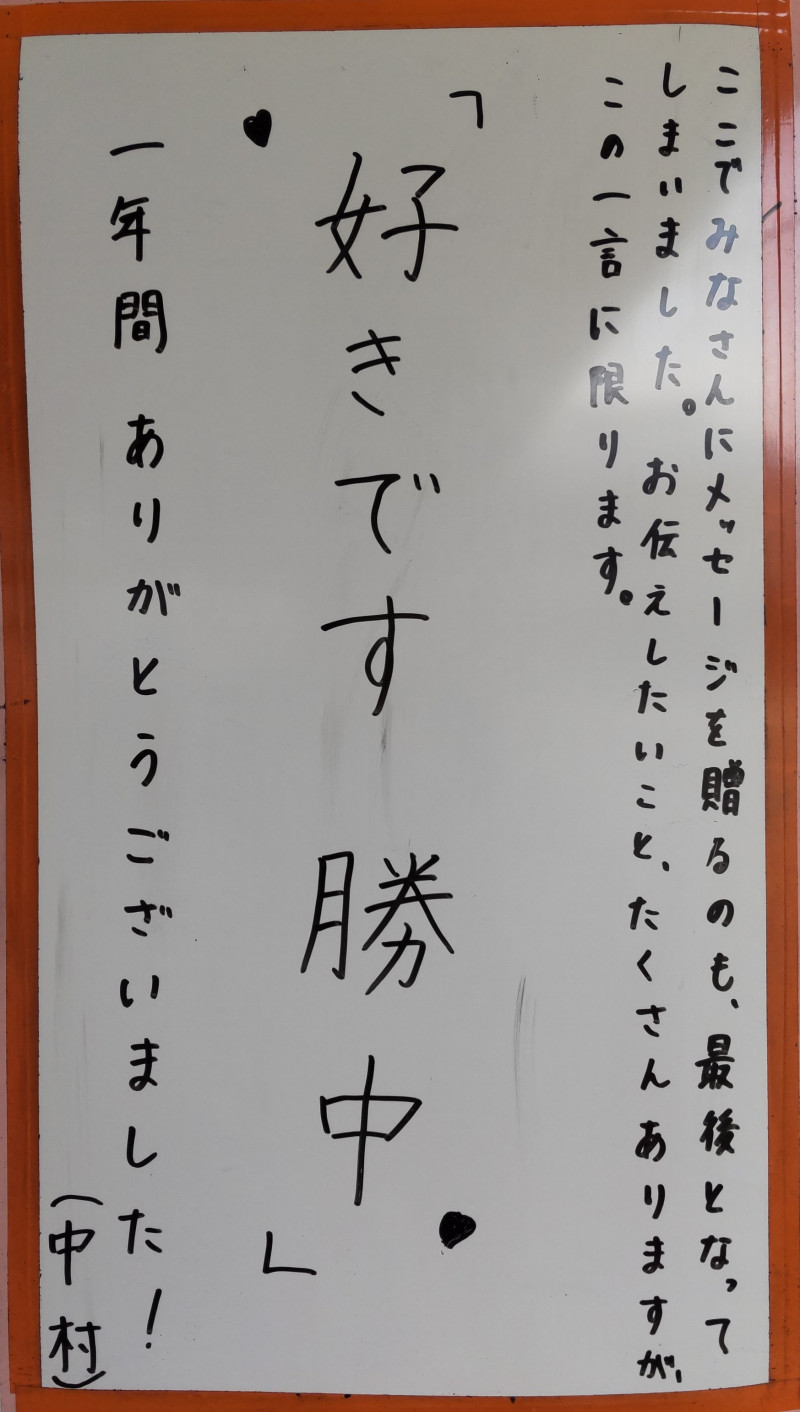 ここでみなさんにメッセージを贈るのも、最後となって
しまいました。お伝えしたいこと、たくさんありますが、
この一言に限ります。
「好きです 勝中」
一年間 ありがとうございました!
(中村)